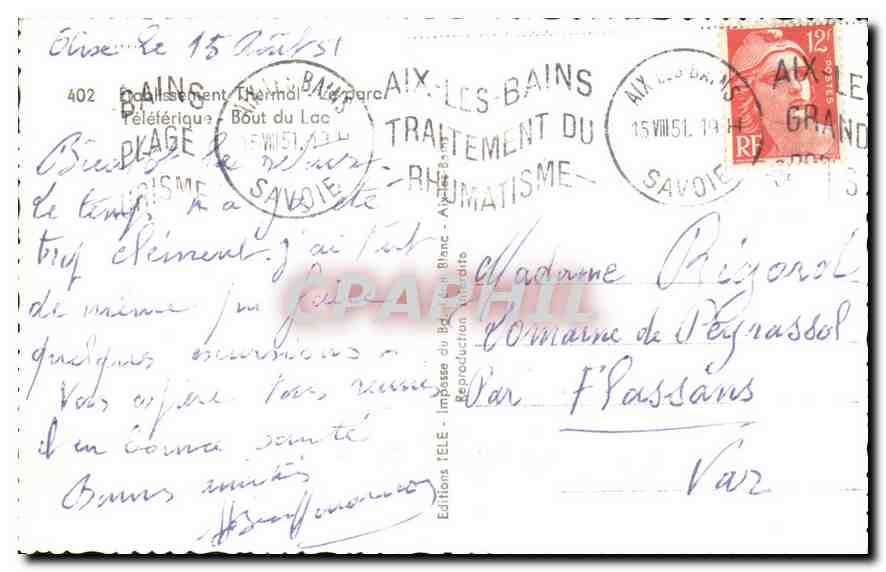 le 15 Août 51
402 Etablissement Thermal - Le Parc
Téléférique - Bout du Lac
BAINS
PLAGE
AIX-LES-BAINS
15 VIII 51. 19 H
SAVOIE
AIX-LES-BAINS
TRAITEMENT DU
RHUMATISME
AIX-LES-BAINS
15 VIII 51. 19 H
SAVOIE
12F
POSTES
RF
AIX-LE
GRAND
le retour.
Le temps n'a été
trop clément. j'ai tout
de même pu faire
quelques excursions.
Vous espère tous réunis
et en bonne santé
Bonnes amitiés
Editions TELE - Impasse du Bain Blanc - Aix-les-Bains
Reproduction interdite
Madame Rigord
Domaine de Peyrassol
Par Flassans
Var
CPAPHIL